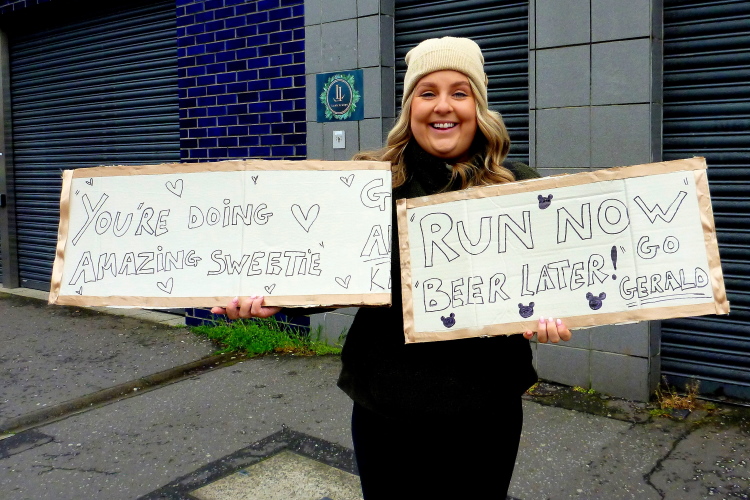 "YOU'RE DOING
AMAZING SWEETIE"
G
A
K
"RUN NOW"
"BEER LATER!"
GO
GERALD